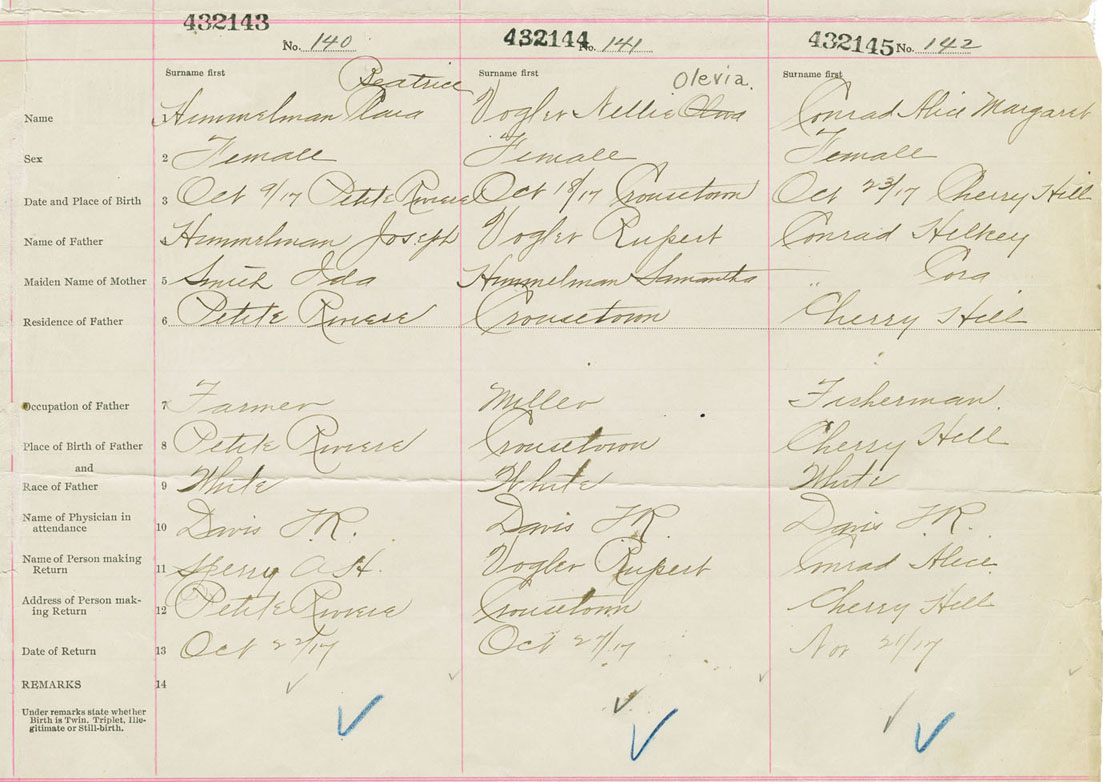 432143 No. 140 432144 No. 141 432145 No. 142
Surname first Surname first Surname first
Beatrice Olevia.
Name 1 Himmelman Clara Vogler Nellie Conrad Alice Margaret
Sex 2 Female Female Female
Date and Place of Birth 3 Oct 9/17 Petite Riviere Oct 18/17 Crousetown Oct 23/17 Cherry Hill
Name of Father 4 Himmelman Joseph Vogler Rupert Conrad Hilkey
Maiden Name of Mother 5 Smith Ida Himmelman Samantha " Cora
Residence of Father 6 Petite Riviere Crousetown Cherry Hill
Occupation of Father 7 Farmer Miller Fisherman.
Place of Birth of Father 8 Petite Riviere Crousetown Cherry Hill
and
Race of Father 9 White White White
Name of Physician in
attendance 10 Davis F.R. Davis F.R. Davis F.R.
Name of Person making
Return 11 Sperry A.H. Vogler Rupert Conrad Alice
Address of Person mak-
ing Return 12 Petite Riviere Crousetown Cherry Hill
Date of Return 13 Oct 22/17 Oct 27/17 Nov 21/17
REMARKS 14
Under remarks state whether
Birth is Twin, Triplet, Ille-
gitimate or Still-birth.